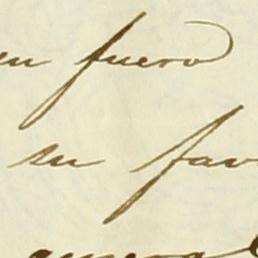 en fuero
su fav